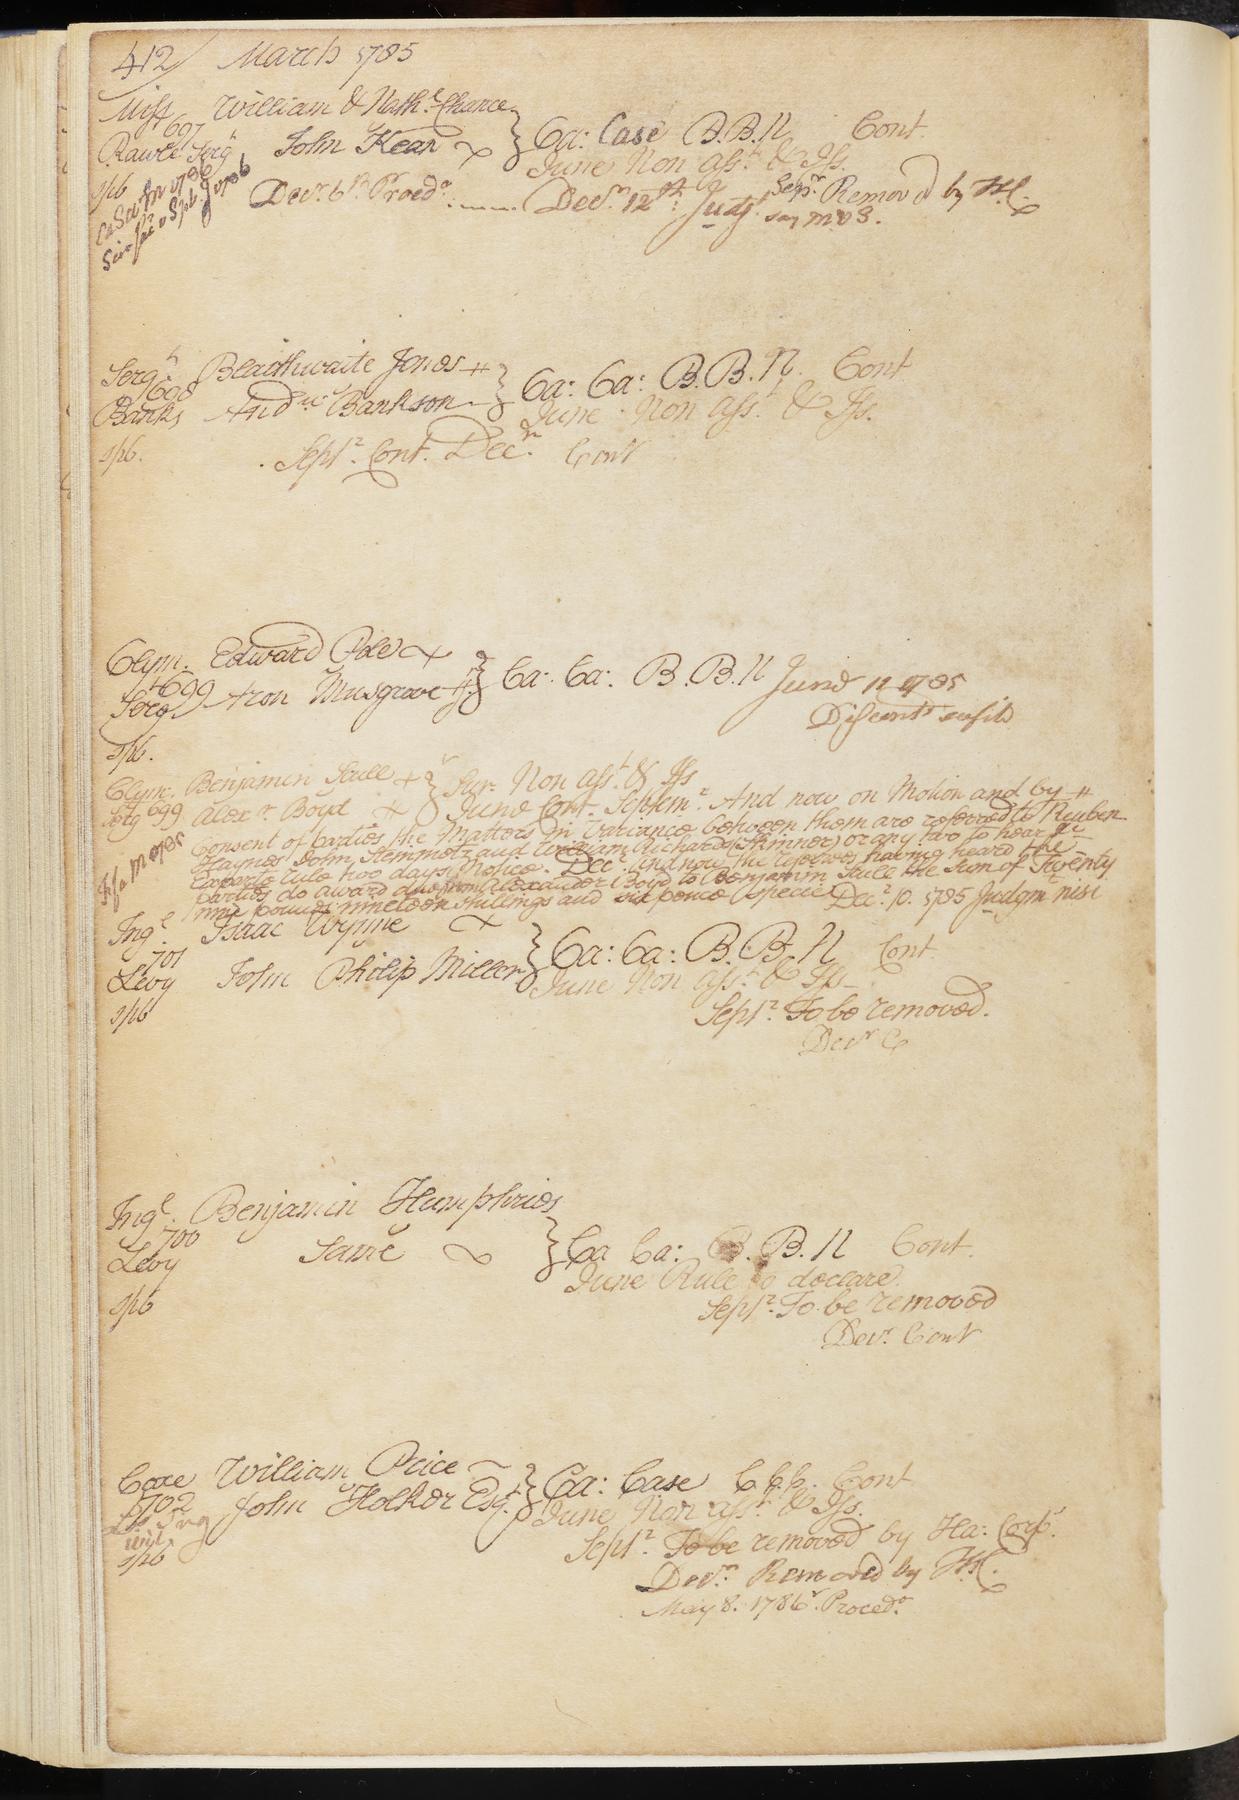 412/ March 1785
Miff William & Nath.l Chance
697
Rawle Serg.t John Kean } Ca: Case B.B.N Cont.
June Non Ass.t & Iss.
spb Dec.r 6th Proced.o ...... Dec.r 12th: Judg.t Sep.r Remov'd by H.C.
Ca Sa to M 1786
Serg.t Bleathwaite Jones # } Ca: Ca: B.B.N. Cont
698
Banks And.w Bankson June Non Ass.t & Iss.
spb. Sept.r Cont. Dec.r Cont
Clym. Edward Pole } Ca: Ca: B.B.N June 1785
699
Serg Aron Musgrove # Discont.d
spb.
Clym. Benjamin Scull + } Sur. Non ass.t & Iss
Serg 699 Alex.r Boyd June Cont. Septem.r And now on Motion and by #
Consent of Parties the Matters in Variance between them are referred to Reuben
Haynes John Stemmetz and William Richards (Skinner) or any two to hear &c
Exparte rule two days Notice. Dec.r And now the referees having heard the
parties do award due from Alexander Boyd to Benjamin Scull the Sum of Twenty
nine pounds nineteen shillings and six pence specie Dec.r 10. 1785 Judgm nisi
Ing.l Isaac Wynne
701 } Ca: Ca: B.B.N Cont.
Levy John Philip Miller June Non ass.t & Iss
spb Sept.r To be removed.
Dec.r C
Ing.l Benjamin Humphries
700
Levy Same } Ca Ca: B.B.N Cont.
June Rule to declare.
spb Sept.r To be removed
Dec.r Cont
Coxe William Price } Ca: Case Cont
702
Ing John Holker Esq.r June Non ass.t & Iss.
spb Sept.r To be removed by Ha: Corp.s
Dec.r Removed by H.C.
May 8. 1786. Proced.o